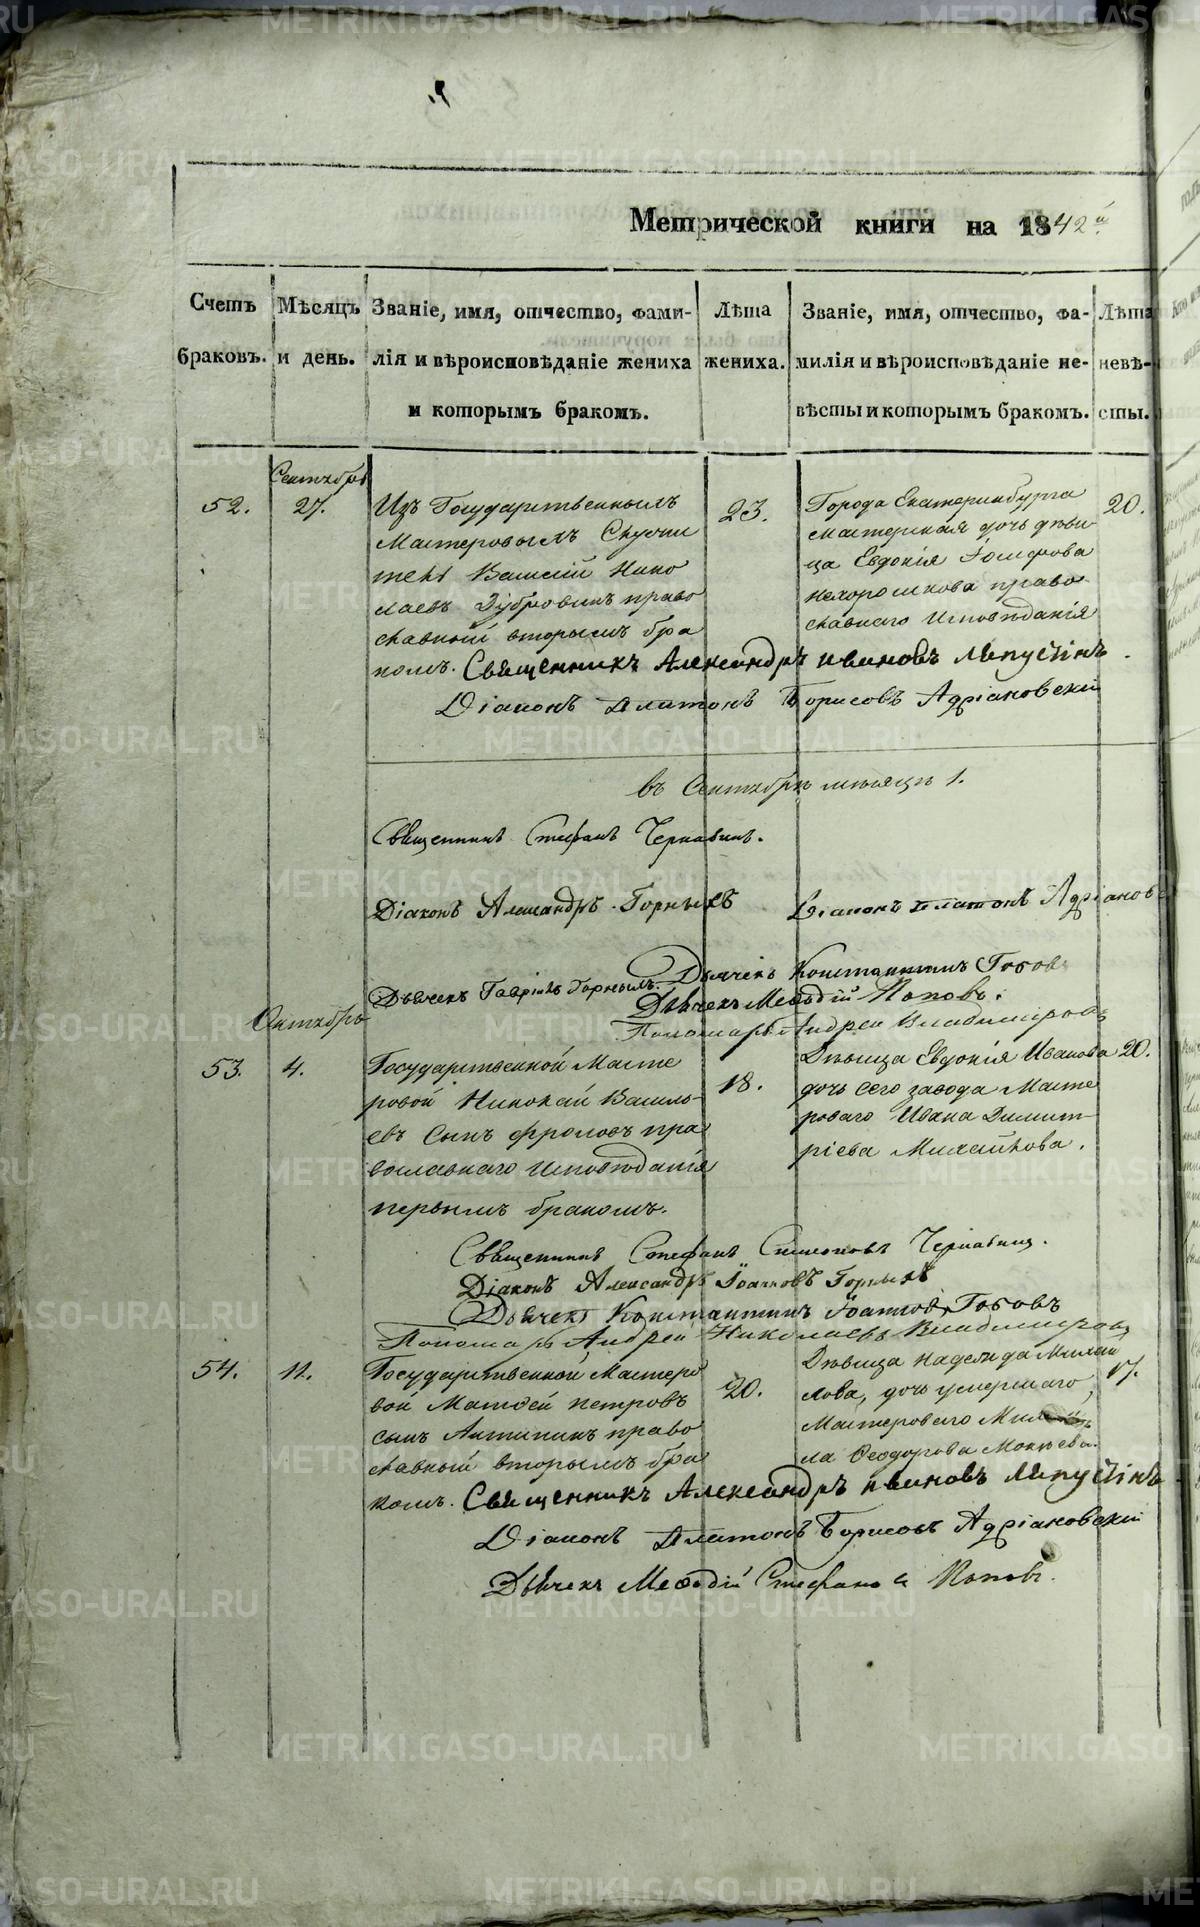 Метрической книги на 1842й.
Счетъ браковъ.
Мѣсяцъ и день.
Званіе, имя, отчество, фами-
лія и вѣроисповѣданіе жениха
и которымъ бракомъ.
Лѣта жениха.
Званіе, имя, отчество, фа-
милія и вѣроисповѣданіе не-
вѣсты и которымъ бракомъ.
Лѣта невѣ-
сты.
Сентябрь
52.
27.
Изъ Государственныхъ
Мастеровыхъ
Василій Нико
лаевъ Дубровинъ право
славный вторымъ бра
комъ.
23.
Города Екатеринбурга
мастерская дочь дѣви
ца Евдокія Іосифова
Нехорошкова право
славнаго Исповѣданія
20.
Священникъ Александръ Ивановъ Лапустинъ.
Діаконъ Платонъ Борисовъ Адріановскій
въ Сентябрѣ мѣсяцѣ 1.
Священникъ Стефанъ Чернавинъ.
Діаконъ Александръ Горныхъ
Діаконъ Платонъ Адріановс
Дьячекъ Гавріилъ Горныхъ.
Дьячекъ Константинъ Гоговъ
Дьячекъ Меѳодій Поповъ.
Пономарь Андрей Владимировъ
Октябрь
53.
4.
Государственной Масте
ровой Николай Василь-
евъ сынъ Фроловъ пра
вославнаго Исповѣданія
первымъ бракомъ.
18.
Дѣвица Евдокія Иванова
дочь сего завода Масте
роваго Ивана Димит-
ріева Михайлова.
20.
Священникъ Стефанъ Симеоновъ Чернавинъ.
Діаконъ Александръ Іоанновъ Горныхъ
Дьячекъ Константинъ Іоанновъ Гоговъ
Пономарь Андрей Николаевъ Владимировъ
54.
11.
Государственной Мастеро
вой Матѳей Петровъ
сынъ Антипинъ право
славный вторымъ бра
комъ.
20.
Дѣвица Надежда Михай
лова, дочь умершаго
Мастероваго Михай
ла Ѳеодорова Мокѣева.
17.
Священникъ Александръ Ивановъ Лапустинъ
Діаконъ Платонъ Борисовъ Адріановскій
Дьячекъ Меѳодій Стефановъ Поповъ.
METRIKI.GASO-URAL.RU